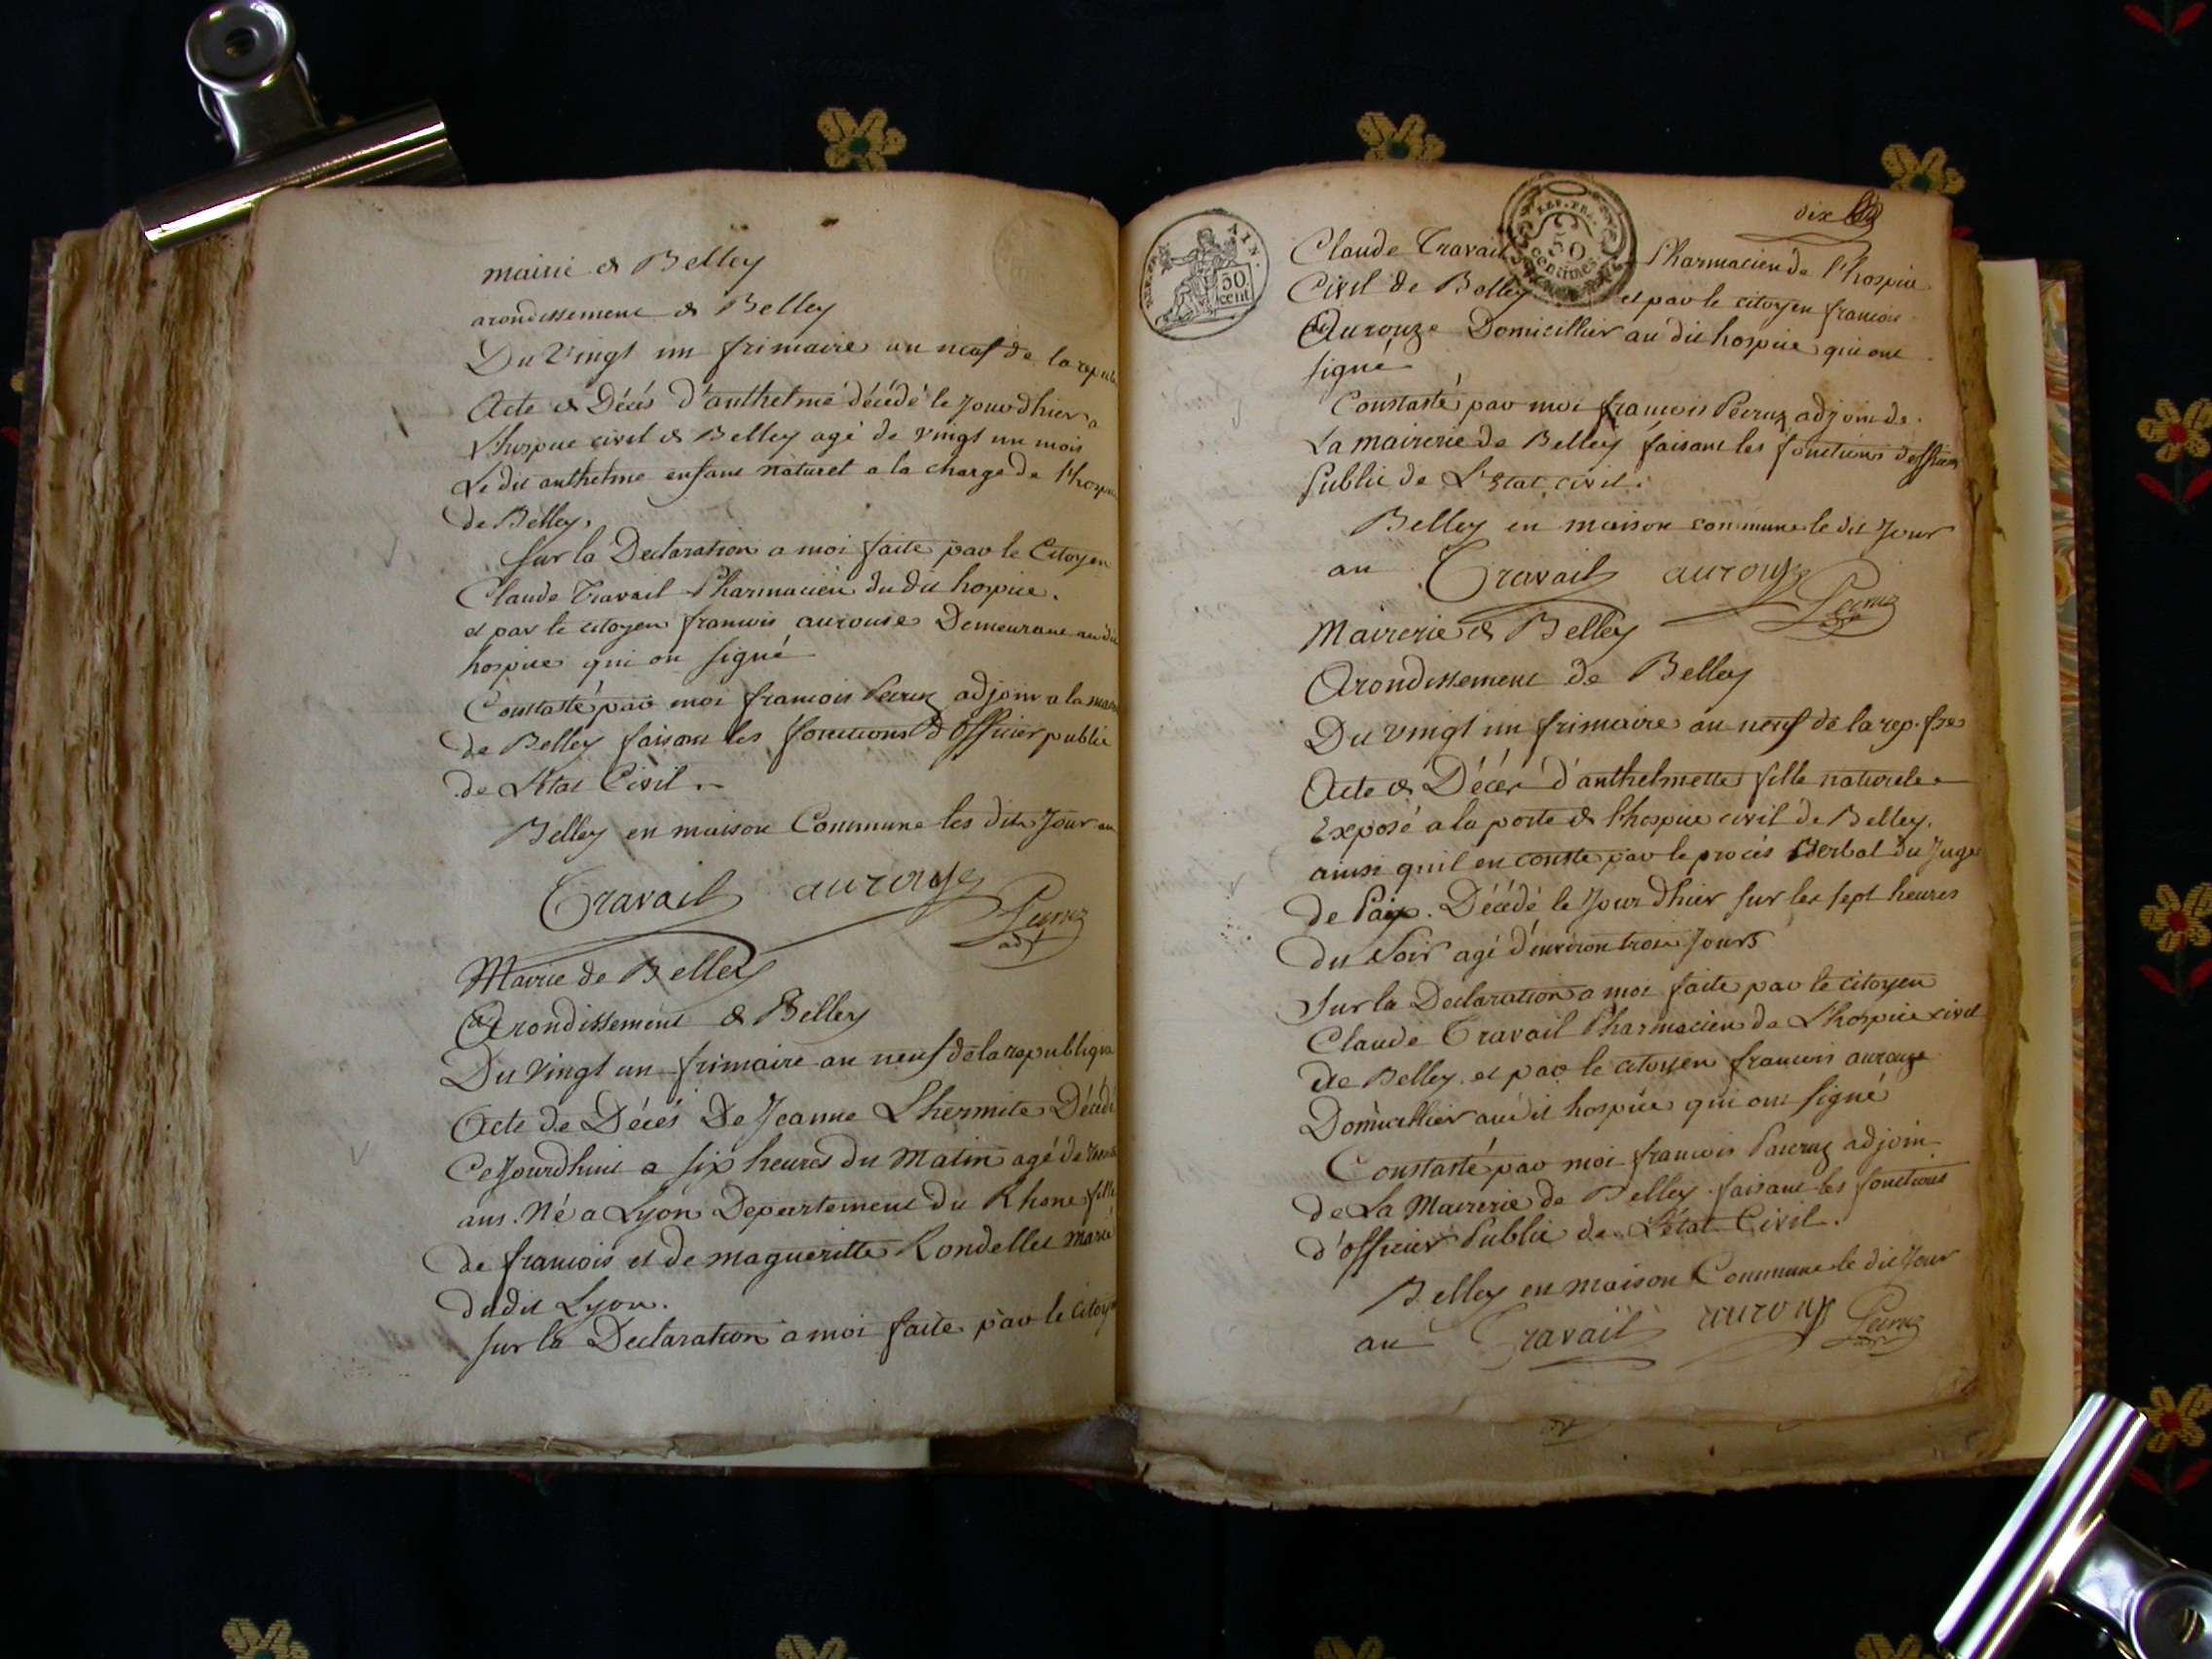 mairie de Belley
arondissement de Belley
Du Vingt un frimaire an neuf de la repub
Acte de Décés d'anthelme décédé le Jour dhier a
l'hospice civil de Belley agé de vingt un mois
Le dit anthelme enfant naturel a la charge de l'hospice
de Belley.
Sur la Declaration a moi faite par le Citoyen
Claude Travail Pharmacien du dit hospice.
et par le citoyen francois aurouse Demeurant au dit
hospice qui on signé
Constaté par moi francois adjoin a la
de Belley faisant les fonctions d'officier public
de L'etat Civil.
Belley en maison Commune les dits Jour an
Travail aurouze
adj
Mairie de Belley
Arondissement de Belley
Du vingt un frimaire an neuf de la republique
Acte de Décés De Jeanne Lhermite Décédé
Cejourdhuit a six heures du Matin agé de
ans. Né a Lyon Departement du Rhone fille
de francois et de magueritte Rondellet
dudit Lyon.
Sur la Declaration a moi faite par le citoyen
dix
REP. FRA.
AIN.
50
cent.
REP. FRA.
50
centimes.
Claude Travail Pharmacien de l'hospice
Civil de Belley et par le citoyen francois
Aurouze Domicillier au dit hospice qui ont
signé
Constaté par moi francois adjoin de
La mairerie de Belley faisant les fonctions d'officier
Public de L'Etat civil.
Belley en maison commune le dit Jour
an Travail aurouze
Mairerie de Belley
Arondissement de Belley
Du vingt un frimaire an neuf de la rep. fse
Acte de Décés d'anthelmette fille naturele
Exposé a la porte de l'hospice civil de Belley.
ainsi quil en conste par le procés Verbal du Juge
de Paix. Décédé le Jour dhier sur les sept heures
du Soir agé d'environ trois Jours
Sur la Declaration a moi faite par le citoyen
Claude Travail Pharmacien de L'hospice civil
de Belley. et par le citoyen francois aurouze
Domicillier audit hospice qui ont signé
Constaté par moi francois adjoin
de La Mairerie de Belley faisant les fonctions
d'officier Public de L'état Civil.
Belley en maison Commune le dit Jour
an Travail aurouze